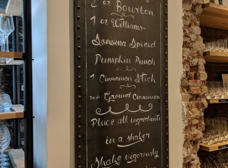 2 oz Bourbon
1 oz Williams
Sonoma Spiced
Pumpkin Punch
1 Cinnamon Stick
Ground Cinnamon
Place all ingredients
in a shaker
Shake vigorously